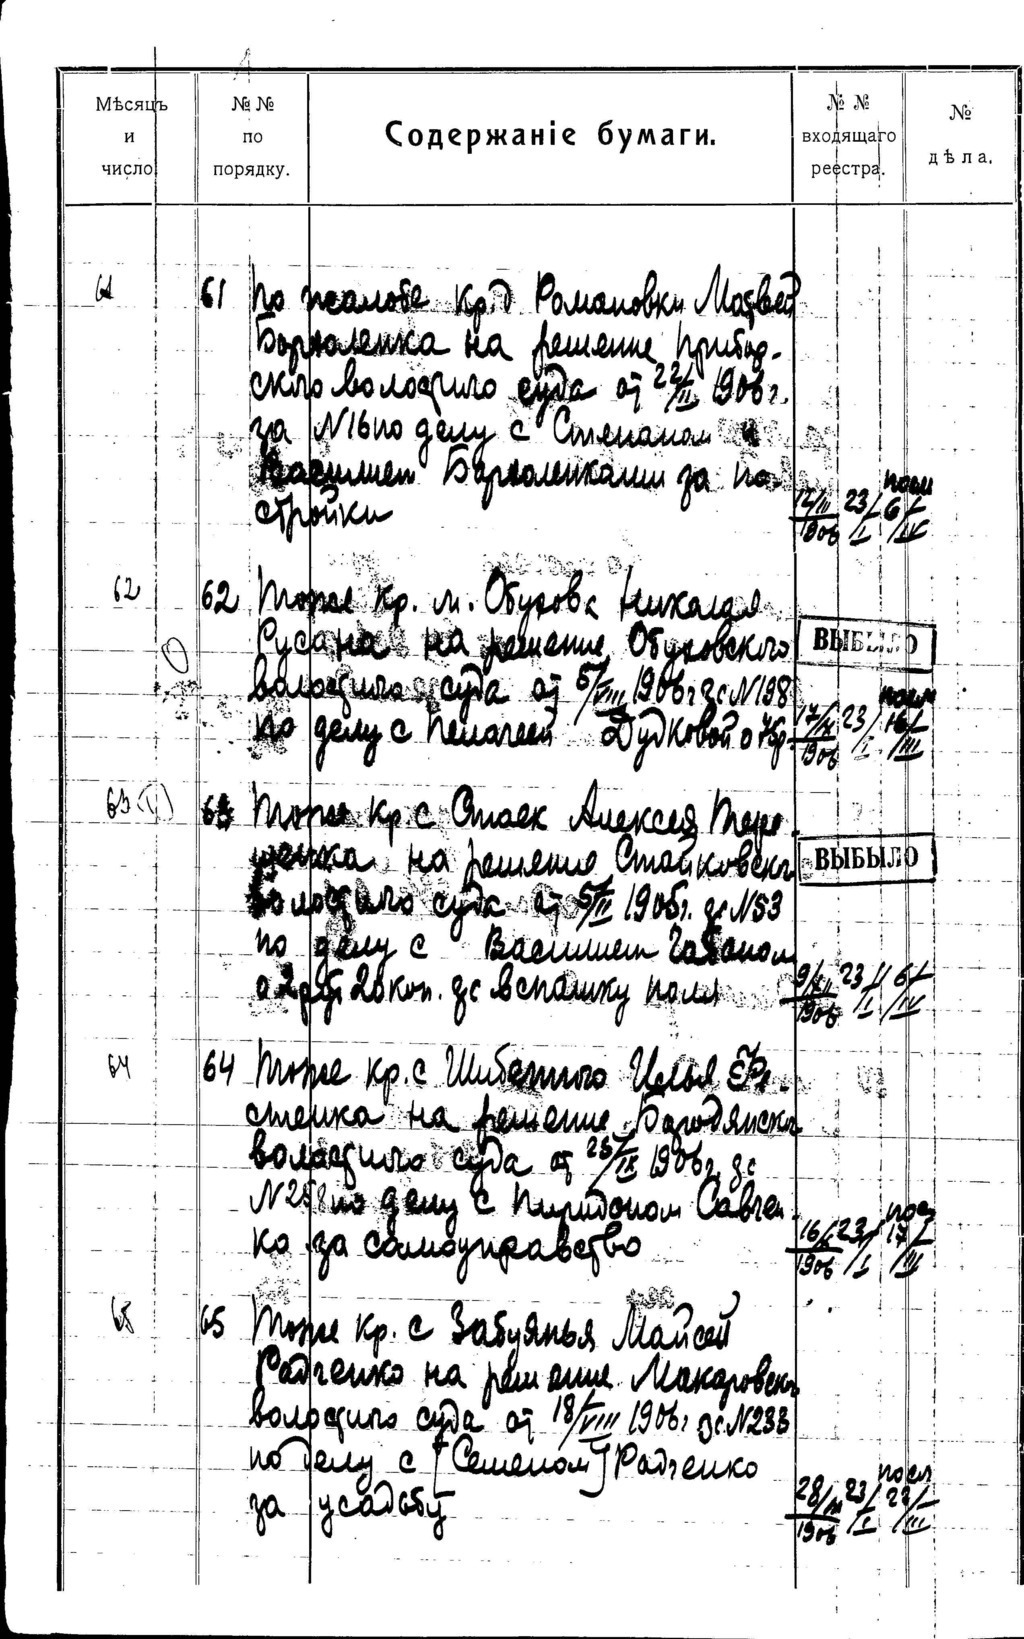 Мѣсяцъ и число
№ № по порядку.
Содержаніе бумаги.
№ № входящаго реестра.
№ дѣла.
61 61 По жалобе кр. д Романовки Матвея
на решение
волостного суда от 22/II 1906 г.
за №16 по делу с Степаном и
Василием Борхоленками за по-
стройки
посл
12/III 1906 23/I 6/IV
62 62 Тоже кр. м. Обухова Николая
Русана на решение Обуховского
волостного суда от 5/VIII 1906 г за №198
по делу с Пелагеей Дудковой о
ВЫБЫЛО
посл
17/X 1906 23/I 16/III
63 63 Тоже кр с Стаек Алексея Тере-
щенка на решение Стайковского
волостного суда от 5/II 1906 г. за №53
по делу с Василием Чабаном
о 2 руб 20 коп. за вспашку поля
ВЫБЫЛО
9/XII 1906 23/I 6/IV
64 64 Тоже кр. с Шибенного Илья
стенка на решение Бородянского
волостного суда от 25/IX 1906 г. за
№258 по делу с Спиридоном Савчен-
ко за самоуправство
посл
16/X 1906 23/I 17/III
65 65 Тоже кр. с Забуянья Майсей
Радченко на решение Макаровского
волостного суда от 18/VIII 1906 г за №233
по делу с [Семеном] Радченко
за усадьбу
посл
1906 23/I 22/III